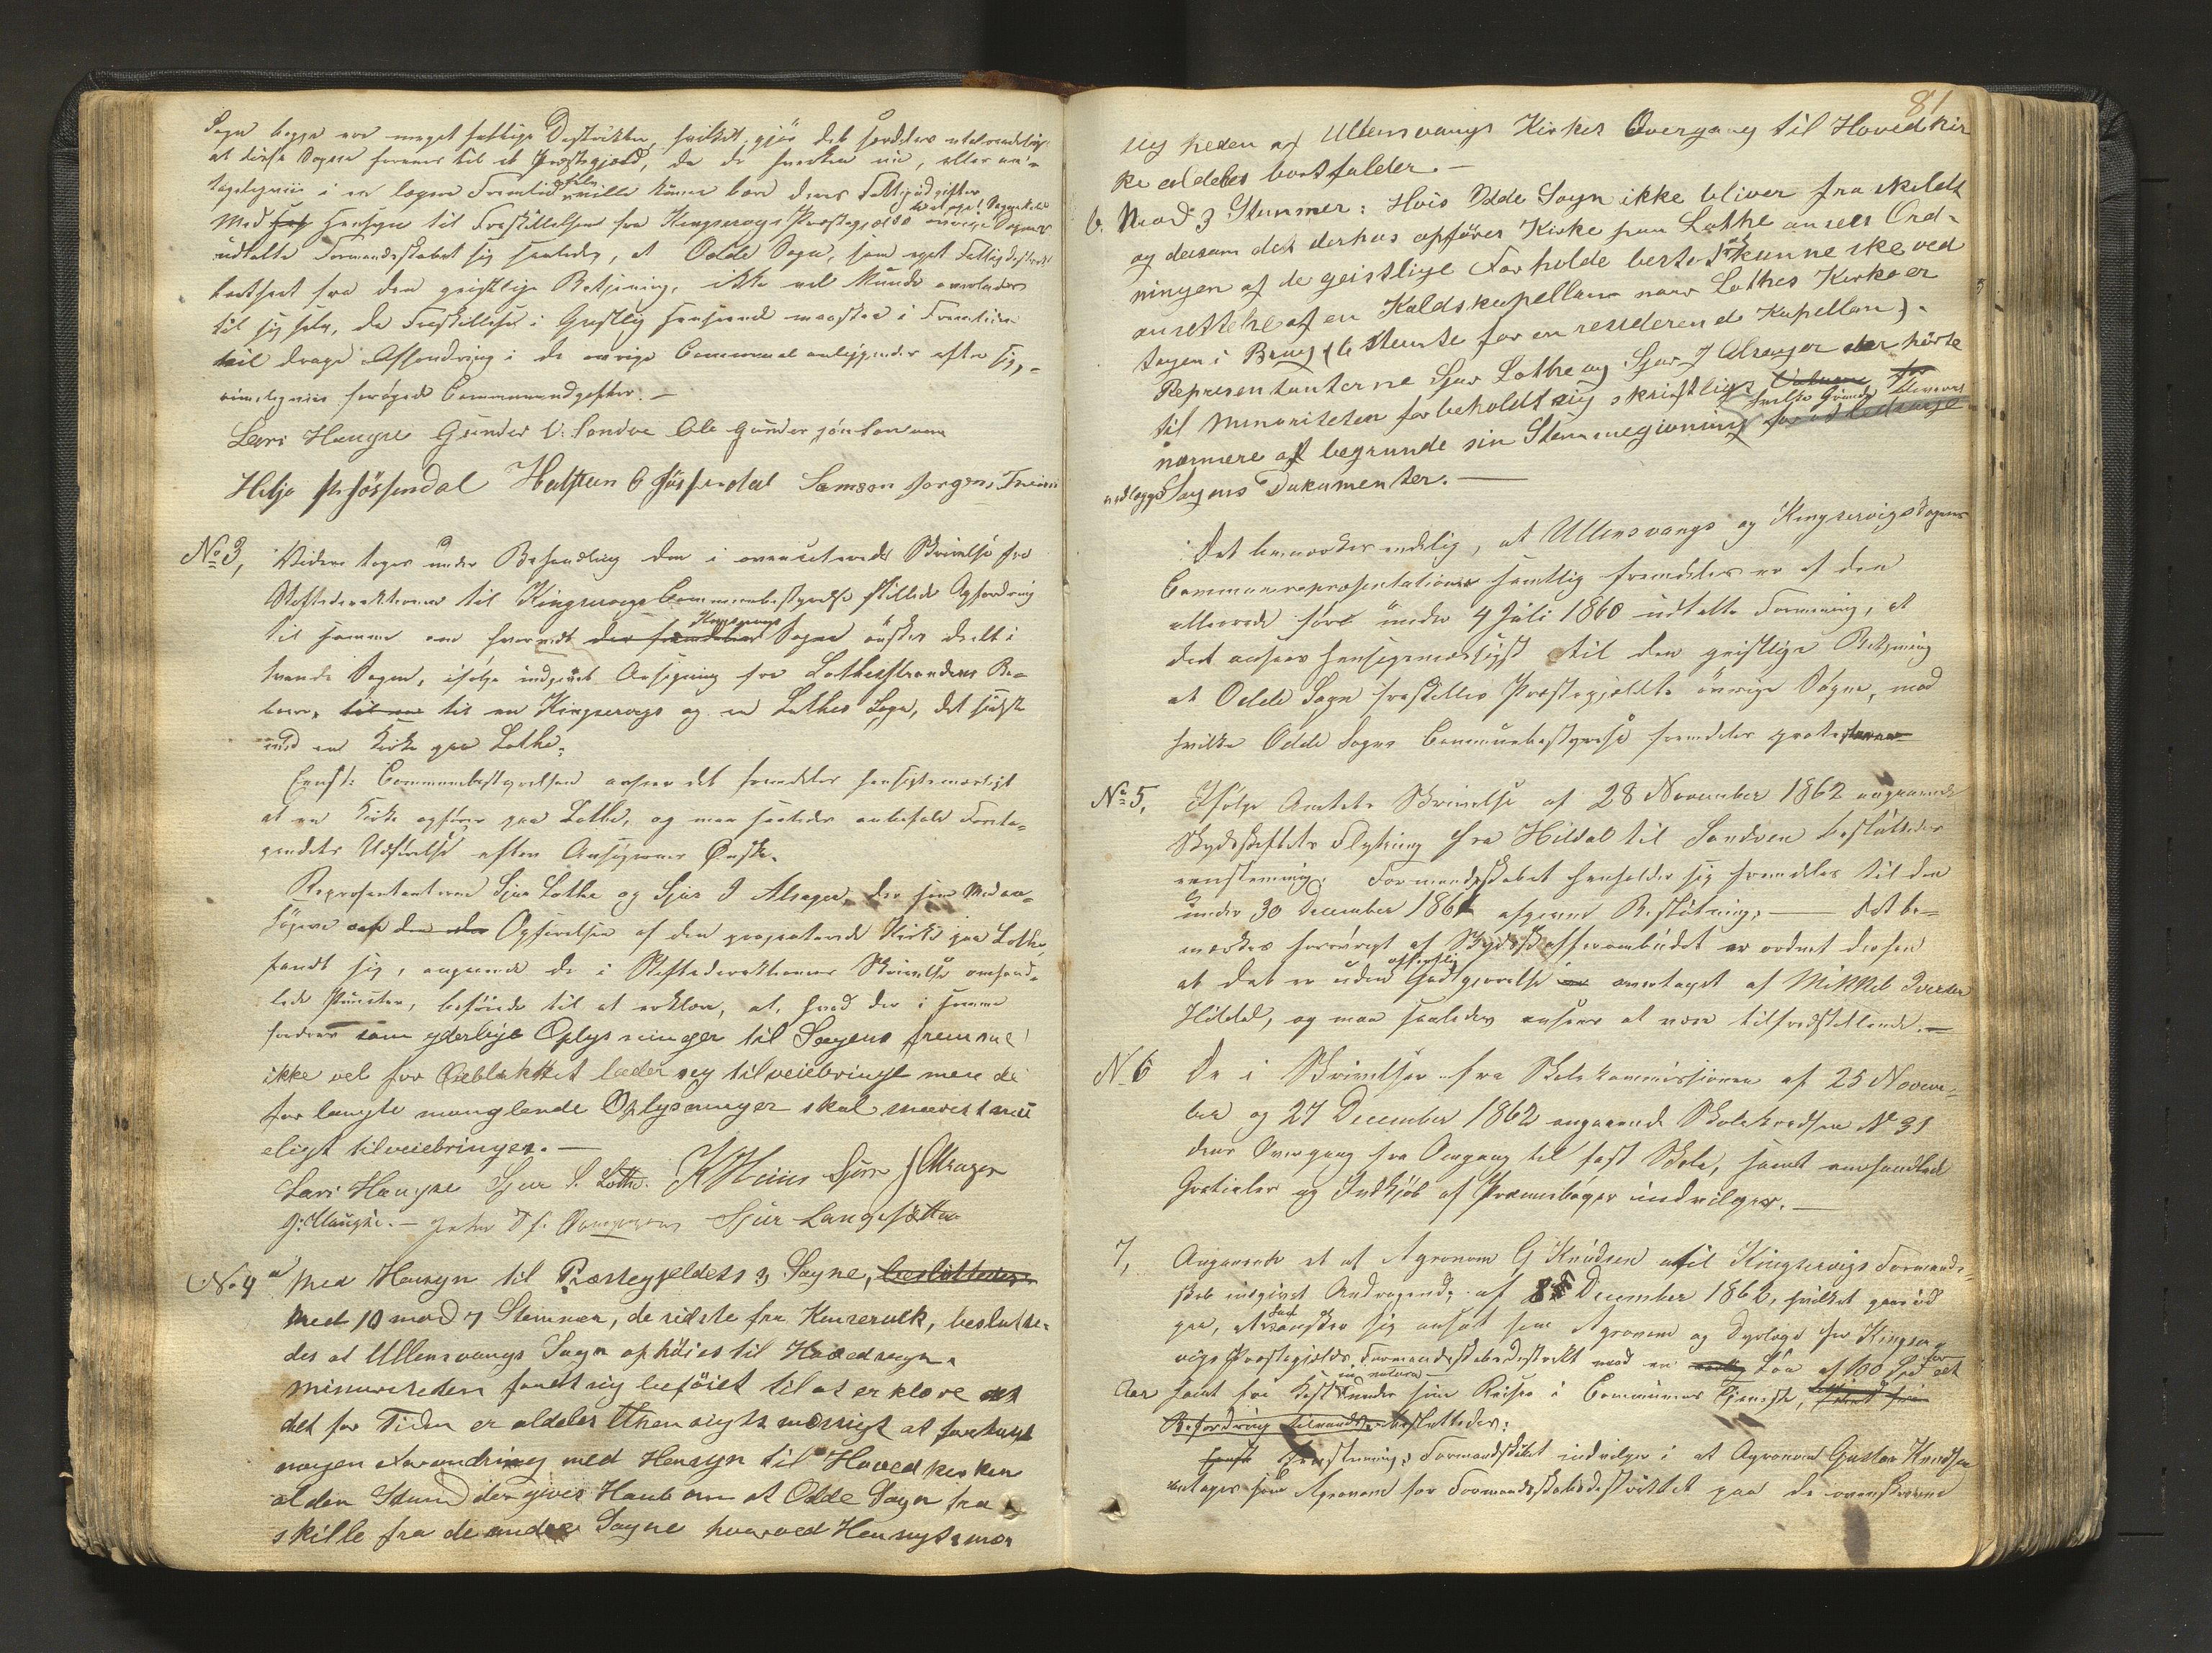 Sogn begge ere meget fattige Destrikter, hvilket gjør det særdeles utilraadeligt
at disse Sogne forenes til et Præstegjæld, da de hverken nu, eller an-
tageligviis i en længere Fremtid selv ville kunne bære deres Fattigudgifter
Med Hensyn til Fraskillelsen fra Kingservigs Præstegjælds øvrige Sogne
udtalte Formandskabet sig saaledes, at Odde Sogn, som eget Fattigdestrikt
bortseet fra den geistlige Betjening, ikke vel kunde overlades
til sig selv, da Fraskillelse i Geistlig Henseende maaskee i Fremtiden
vil drage Afsondring i de øvrige Communeanliggender efter sig,
rimeligviis forøgede Communeudgifter. —
Lars Haugse Gunder V. Sandve Ole Gunderjönson
Helje Jösendal Halsten O Jösendal Samson Jorgens
No 3, Videre toges under Behandling den i ovenciterede Skrivelse fra
Stiftsdirektionen til Kingservigs Communebestyrelse stillede Opfordring
til samme om hvorvidt der fremdeles Kingservigs Sogn ønskes deelt i
tvende Sogne, ifølge indgivet Ansøgning fra Lothestrandens Be-
boere, til en til en Kingservigs og en Lothes Sogn, det sidste
med en Kirke paa Lothe.
Eenst: Communebestyrelsen anseer det fremdeles hensigtsmæssigt
at en Kirke opføres paa Lothe, og maa saaledes anbefale Foreta-
gendets Udførelse efter Ansøgernes Ønske.
Repræsentanterne Sjur Lothe og Sjur J Alsager, der som Medan-
søgere om den Opførelsen af den projecterede Kirke paa Lothe,
fandt sig, angaaende de i Stiftsdirektionens Skrivelse omhand-
lede Puncter, beføiede til at erklære, at, hvad der i samme
fordres som yderlige Oplysninger til Sagens fremme
ikke vel for Øieblikket lader sig tilveiebringe men de
forlangte manglende Oplysninger skal snarest mu
eligt tilveiebringes. —
Lars Haugse Sjur S. Lothe. Sjur J Alsager
G. Maugse. — Sjur Langesætter
No 4 a Med Hensyn til Præstegjeldets 3 Sogne, besluttedes
med 10 mod 7 Stemmer, de sidste fra Kinservik, beslutte-
des at Ullensvangs Sogn ophöies til Hovedsogn.
Minoriteten fandt sig beföiet til at erklære at
det for Tiden er aldeles Uhensigtsmæssigt at foretage
nogen Forandring med Hensyn til Hovedkirken
al den Stund der gives Haab om at Odde Sogn fra
skille fra de andre Sogne hvorved Hensigtsmæs
81
sigheden af Ullensvangs Kirkes Overgang til Hovedkir
ke aldeles bortfalder. —
b. Mod 3 Stemmer: Hvis Odde Sogn ikke bliver fraskildt
og dersom det derhos opföres Kirke paa Lothe ansees Ord-
ningen af de geistlige Forholde bedst at kunne ske ved
ansettelse af en Kaldskapellan naar Lothes Kirke er
tagen i Brug (6 Stemte for en residerende Kapellan).
Representanterne Sjur Lothe og Sjur J Alsager der hörte
til Minoriteten forbeholdt sig skriftligt
nærmere at begrunde sin Stemmegivning hvilke Grunde for at ledsage
vedlægges Sagens Dokumenter. —
Det bemærkes endelig, at Ullensvangs og Kingservigs Sognes
Communerepræsentationer samtlig fremdeles er af den
allerede før under 4 Juli 1860 udtalte Formening, at
det ansees hensigtsmæssigst til den geistlige Betjening
at Odde Sogn fraskilles Præstegjældets øvrige Sogne, mod
hvilke Odde Sogns Communebestyrelse fremdeles protesterer
No 5, Ifølge Amtets Skrivelse af 28 November 1862 angaaende
Skydsskiftets Flytning fra Hildal til Sandven besluttedes
eenstemmig: Formandskabet henholder sig fremdeles til den
under 30 December 1861 afgivne Beslutning. — Det be-
mærkes forøvrigt at Skydsskafferombudet er ordnet derhen
at det er uden offentlig Godtgjørelse overtaget af Mikkel Iversen
Hildal, og maa saaledes ansees at være tilfredsstillende. —
No 6 De i Skrivelser fra Skolekommissionen af 25 Novem-
ber og 27 December 1862 angaaende Skolekredsen No 31
dens Overgang fra Omgang til fast Skole, samt omhandlede
Gratialer og Indkjøb af Præmiebøger indvilges. —
7, Angaaende et af Agronom G Knudsen til Kingservigs Formand-
skab indgivet Andragende af 8 December 1862, hvilket gaar ud
paa, at han ønsker sig ansat som Agronom og Dyrlæge for Kingser-
vigs Præstegjælds Formandskabsdestrikt mod en Løn af 100 Spd for eet
Aar samt fri Kost in natura under sine Reiser i Communens Tjeneste, samt fri
Befordring tilvands — besluttedes:
Eenst Eenstemmig: Formandskabet indvilger i at Agronom Gustav Knudsen
antages som Agronom for Formandskabsdestriktet paa de ovenskrevne